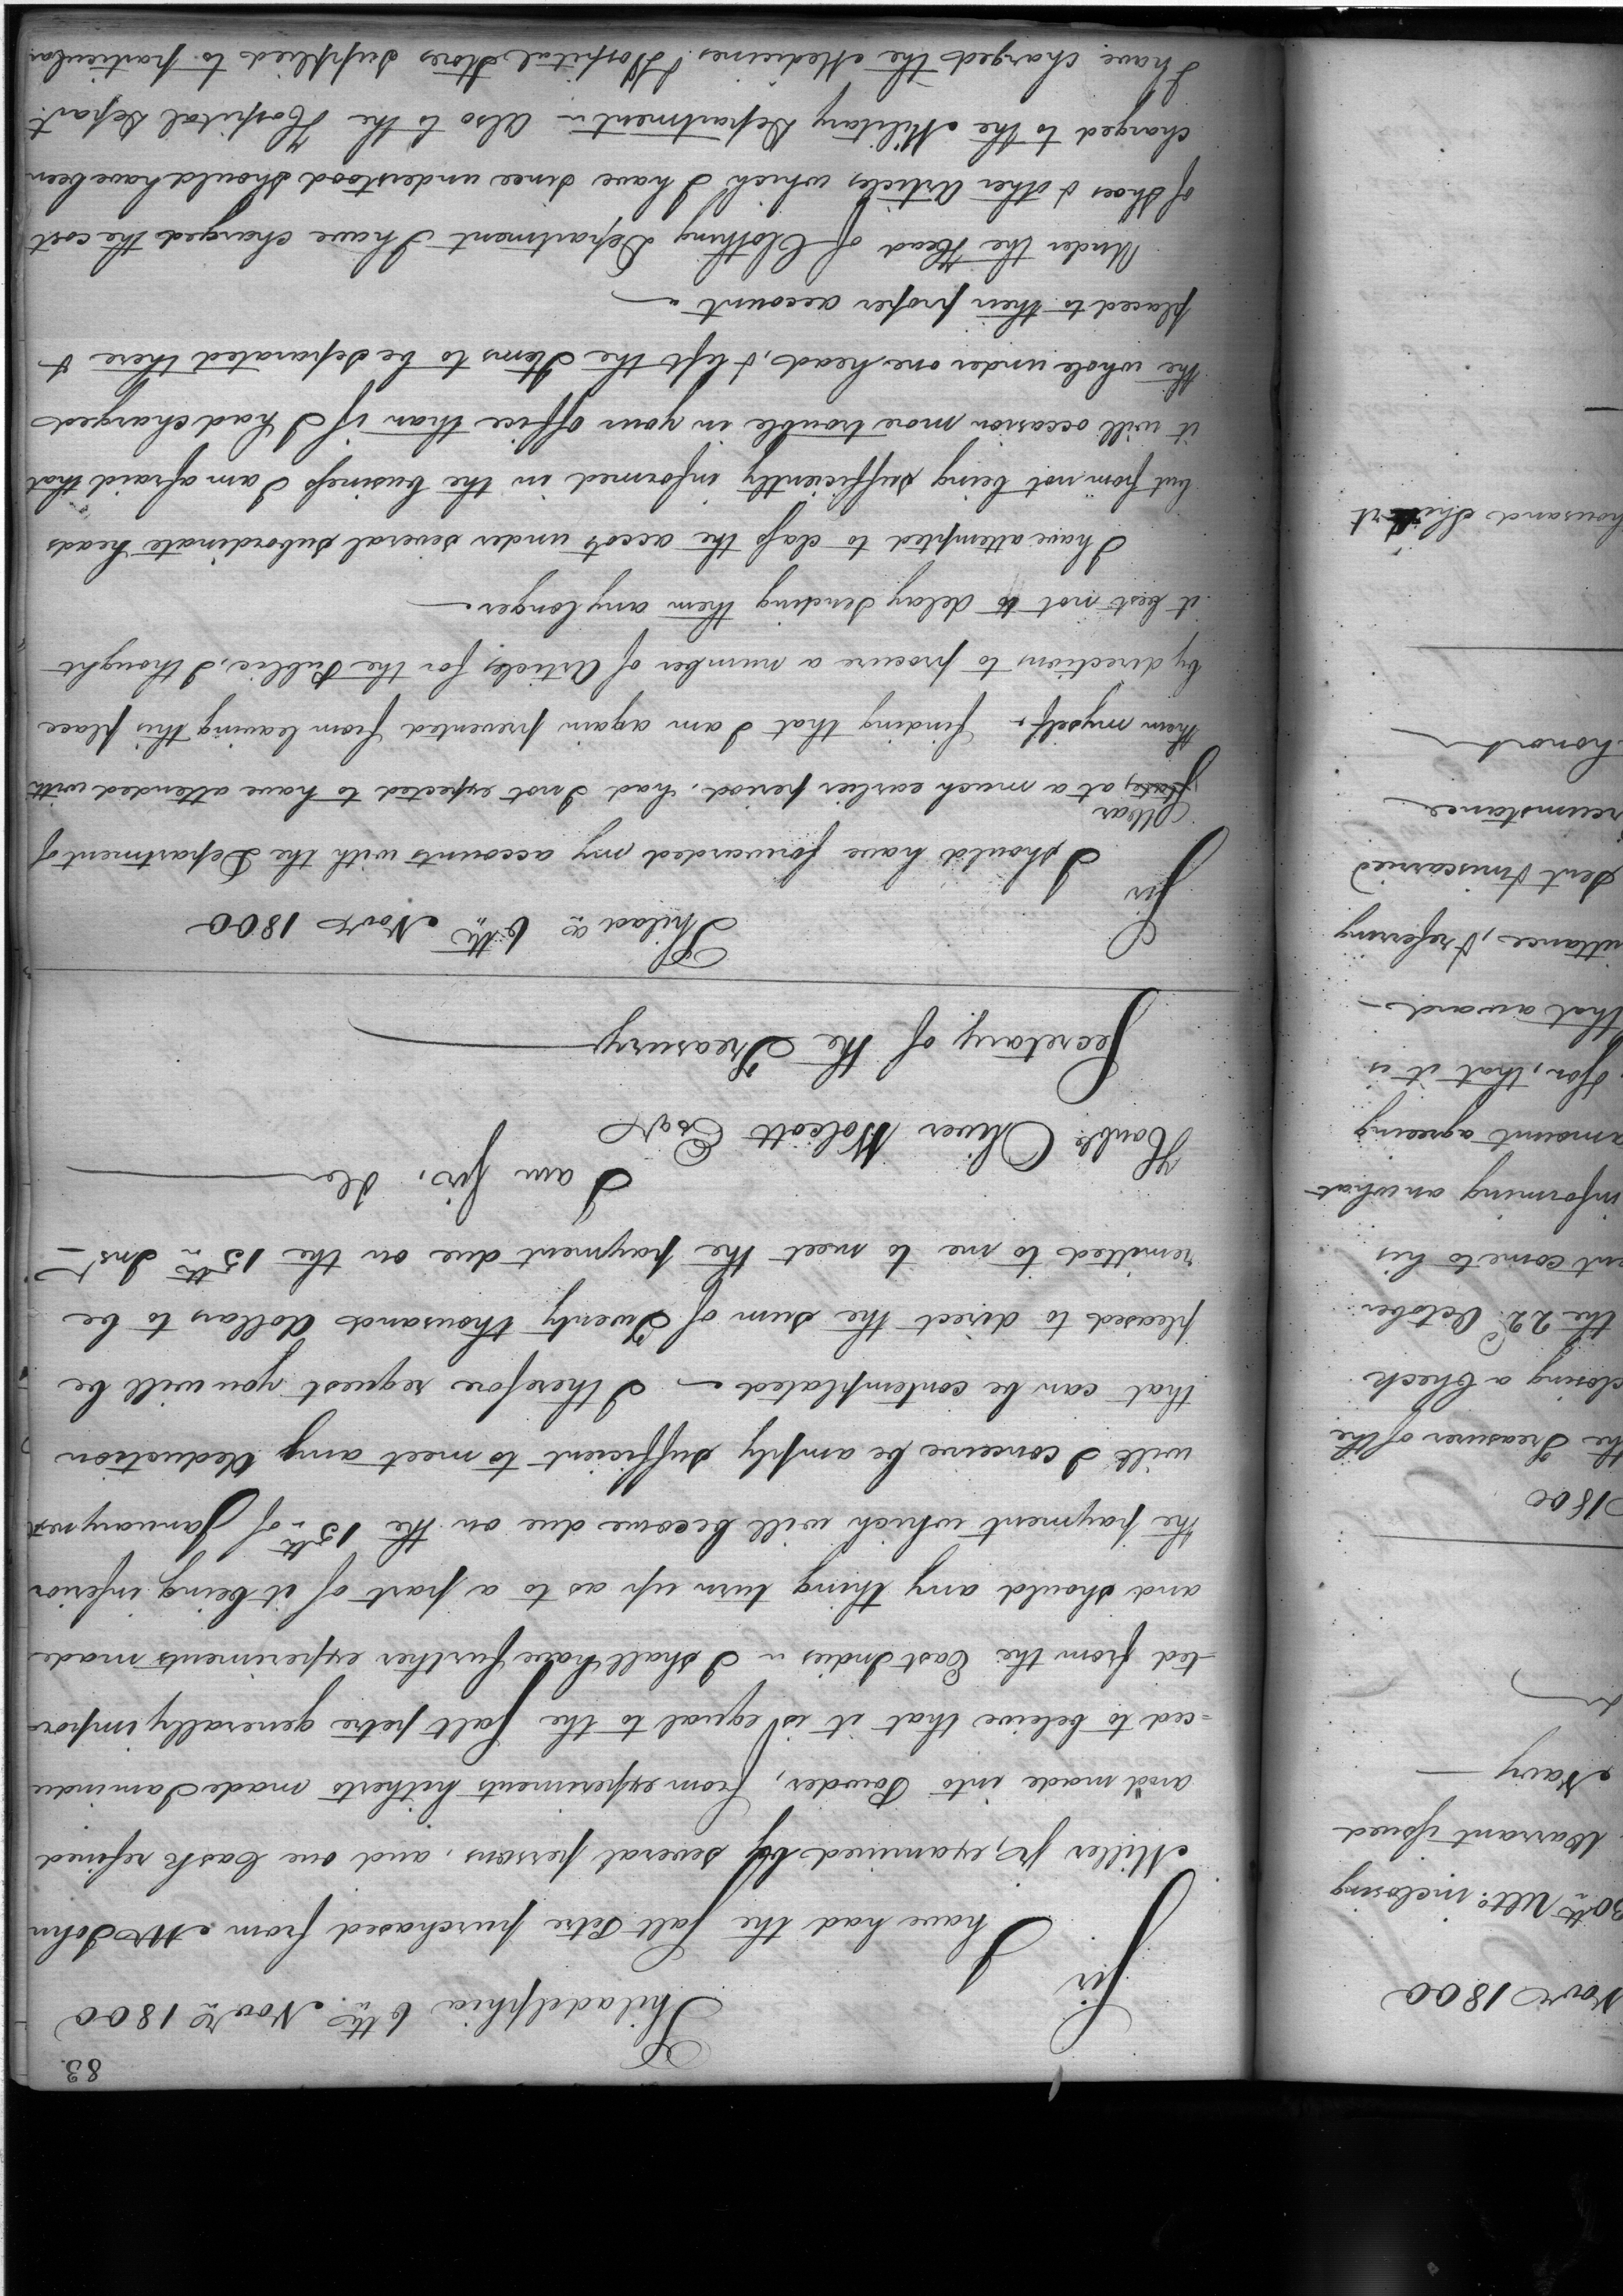 83.
Philadelphia 6th Novr 1800
Sir
I have had the Salt Petre purchased from Mr John
Miller Jr, examined by several persons, and one Cask refined
and made into Powder, from experiments hitherto made I am indu
=ced to beleive that it is equal to the Salt petre generally impor
-ted from the East Indies I shall have further experiments made
and should any thing turn up as to a part of it being inferior
the payment which will become due on the 15th of January next
will I conceive be amply sufficient to meet any deduction
that can be contemplated - I therefore request you will be
pleased to direct the sum of Twenty thousand dollars to be
remitted to me to meet the payment due on the 15th Inst -
I am Sir, &c
Honble Oliver Wolcott Esqr
Secretary of the Treasury
Philada 6th Novr 1800
Sir
I should have forwarded my accounts with the Department of
War
State, at a much earlier period, had I not expected to have attended with
them myself - finding that I am again prevented from leaving this place
by directions to procure a number of Articles for the Public, I thought
it best not to delay sending them any longer.
I have attempted to class the accots under several subordinate heads
but from not being sufficiently informed in the business I am afraid that
it will occasion more trouble in your office than if I had charged
the whole under one head, & left the Items to be separated there &
placed to their proper account -
Under the Head of Clothing Department I have charged the cost
of shoes & other Articles which I have since understood should have been
charged to the Military Department - Also to the Hospital Depart
I have charged the Medicines & Hospital Stores supplied to particular
Novr 1800
30th Ulto. inclosing
Warrant issued
Navy
1800
the Treasurer of the
closing a Check
the 22d October
ent come to his
informing an what
amount agreeing
for, that it is
that award
ittance, & refering
sent & miscarried
rcumstance
honor
housand